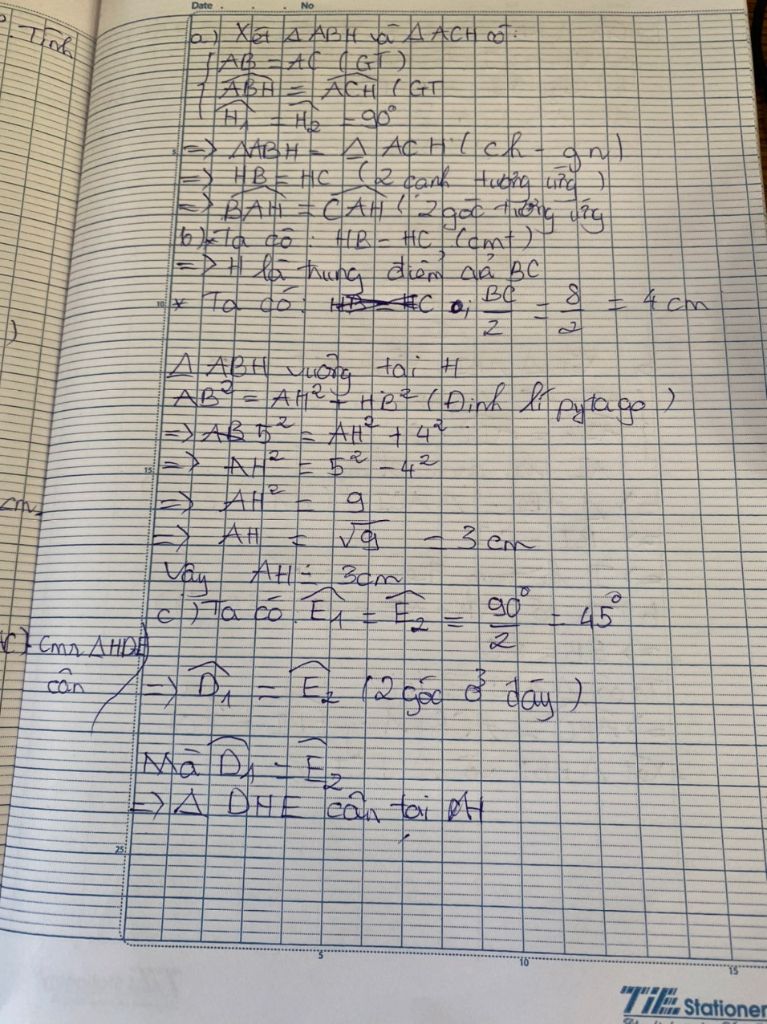 Date . . No
Tính
a) Xét Δ ABH và Δ ACH có:
AB = AC (GT)
ABH = ACH (GT
H1 = H2 = 90°
=> ΔABH = Δ ACH (ch - gn)
=> HB = HC (2 cạnh tương ứng)
=> BAH = CAH (2 góc tương ứng
b) * Ta có: HB = HC (cmt)
=> H là trung điểm của BC
* Ta có: BC/2 = 8/2 = 4 cm
Δ ABH vuông tại H
AB² = AH² + HB² (Định lí pytago)
=> AB 5² = AH² + 4²
=> AH² = 5² - 4²
=> AH² = 9
=> AH = √9 = 3 cm
Vậy AH = 3cm
c) Ta có: E1 = E2 = 90°/2 = 45°
c) Cmr ΔHDE
cân
=> D1 = E2 (2 góc ở đáy)
Mà D1 = E2
=> Δ DHE cân tại H
cm
5
10
15
25
5
10
15
TiE Stationer